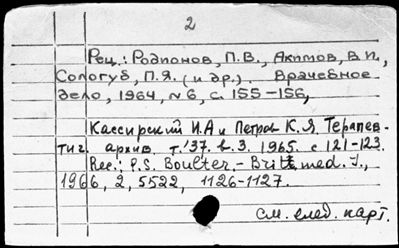 2
Рец.: Родионов, П.В., Акимов, В.И.,
Сологуб, П.Я. (и др.). Врачебное
дело, 1964, №6, с. 155-156,
Кассирский И.А и Петров К.Я. Терапев-
тич. архив. т.'37. в.3. 1965. с 121-123.
Rec.: P.S. Boulter. - Brit. med. J.,
1966, 2, 5522, 1126-1127.
см. след. карт.